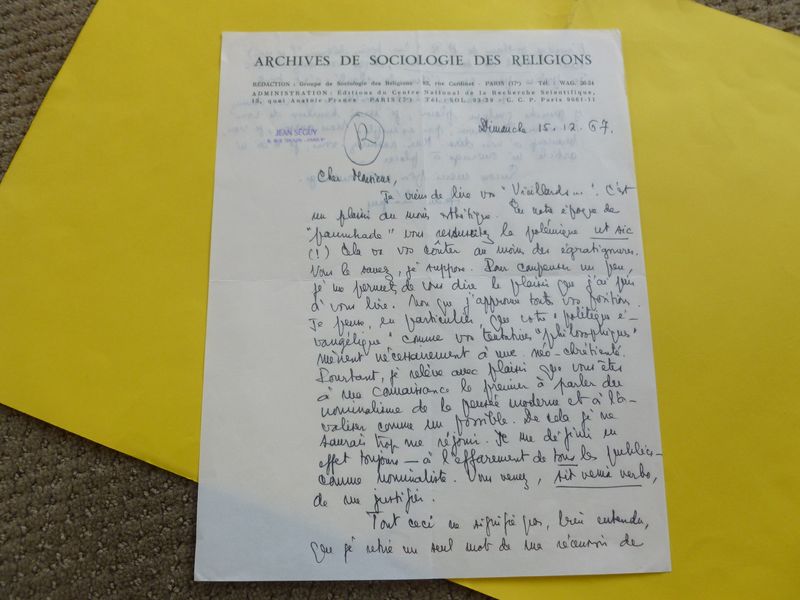 ARCHIVES DE SOCIOLOGIE DES RELIGIONS
RÉDACTION : Groupe de Sociologie des Religions - 82, rue Cardinet - PARIS (17e) - Tél. : WAG.
ADMINISTRATION : Éditions du Centre National de la Recherche Scientifique,
15, quai Anatole France - PARIS (7e) - Tél. : SOL. 93-39 - C. C. P. Paris 9061-11
Dimanche 15.12.67.
JEAN SÉGUY
R
Cher Monsieur,
Je viens de lire vos "Vieillards...". C'est
un plaisir au moins esthétique. En notre époque de
vous ressuscitez la polémique ut sic
(!) Cela va vous coûter au moins des égratignures.
Vous le savez, je suppose. Pour compenser un peu,
je me permets de vous dire le plaisir que j'ai pris
à vous lire. Non que j'approuve toutes vos positions.
Je pense, en particulier, que votre "politique é-
vangélique" comme vos tentatives "philosophiques"
mènent nécessairement à une néo-chrétienté.
Pourtant, je relève avec plaisir que vous êtes
à ma connaissance le premier à parler du
nominalisme de la pensée moderne et à l'é-
valuer comme un possible. De cela je ne
saurais trop me réjouir. Je me définis en
effet toujours — à l'effarement de tous les publics —
comme nominaliste. Vous venez, sit venia verbo,
de me justifier.
Tout ceci ne signifie pas, bien entendu,
que je retire un seul mot de ma recension de